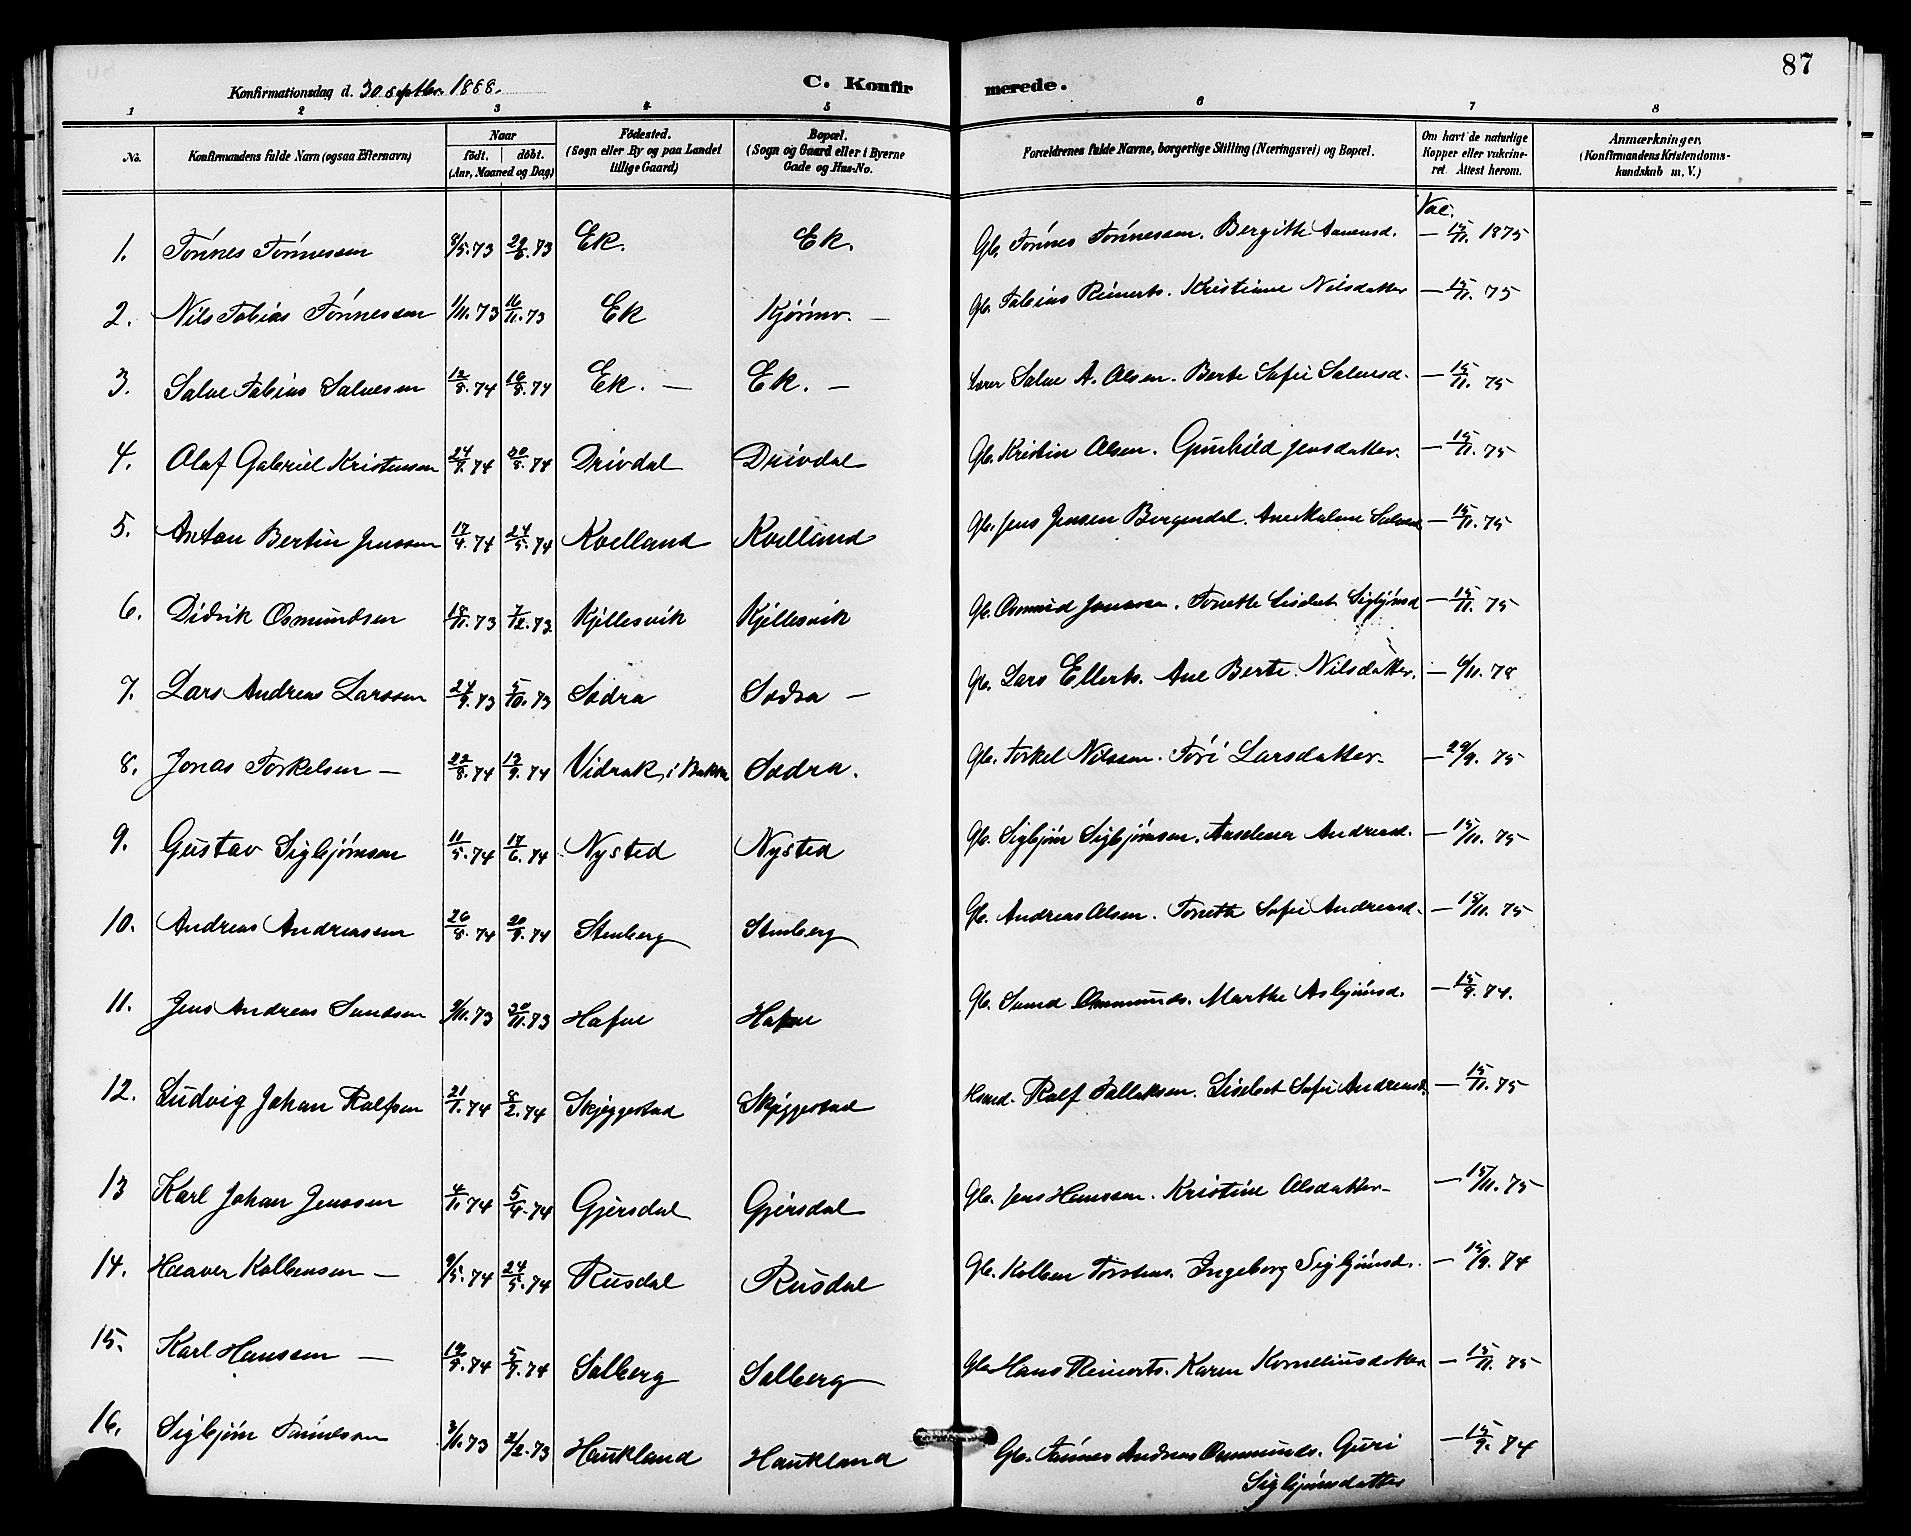 87
Konfirmationsdag d. 30 septbr. 1888.
C. Konfirmerede.
1 2 3 4 5 6 7 8
No. Konfirmandens fulde Navn (ogsaa Efternavn) Naar födt. döbt. (Aar, Maaned og Dag) Födested. (Sogn eller By og paa Landet tillige Gaard) Bopæl. (Sogn og Gaard eller i Byerne Gade og Hus-No. Forældrenes fulde Navne, borgerlige Stilling (Næringsvei) og Bopæl. Om havt de naturlige Kopper eller vakcineret Attest herom. Anmærkninger, (Konfirmandens Kristendomskundskab m. V.)
Vac.
1. Tónnes Tónnessen 9/5.73 29/6.73 Ek. Ek. Gb. Tónnes Tónnessen. Bergithe Aanensd. — 15/11. 1875
2. Nils Tobias Tónnessen 1/11.73 16/11.73 Ek Kjórmo. — Gb. Tobias Reinerts. Kristiane Nilsdatter — 15/11. 75
3. Salve Tobias Salvesen 12/8.74 16/8.74 Ek. — Ek. — Salve A. Olsen. Berte Sofie Salvesd. — 15/11. 75
4. Olaf Gabriel Kristensen 24/7.74 20/8.74 Drivdal Drivdal Gb. Kristen Olsen. Gunhild Jensdatter. — 15/11. 75
5. Anton Bertin Jenssen 17/4.74 24/5.74 Kvelland Kvelland Gb. Jens Jensen Bergendal. Ane Malene Salvesd. — 15/11. 75
6. Didrik Osmundsen 18/11.73 7/12.73 Kjellesvik Kjellesvik Gb. Osmund Jonassen. Tonette Liselet Sigbjórnsd — 15/11. 75
7. Lars Andreas Larssen 24/9.73 5/10.73 Sodra Sodra — Gb. Lars Ellerts. Ane Berte Nilsdatter. — 6/11. 78
8. Jonas Torkelsen — 22/8.74 13/9.74 Vidrak i Bakke Sodra. Gb. Torkel Nilssen. Tóri Larsdatter — 29/9. 75
9. Gustav Sigbjórnsen 11/5.74 17/6.74 Nysted Nysted Gb. Sigbjórn Sigbjórnsen. Anselena Andreasd. — 15/11. 75
10. Andreas Andreassen 26/8.74 20/9.74 Stenberg Stenberg Gb. Andreas Olsen. Toneth Sofie Andreasd. — 15/11. 75
11. Jens Andreas Svendsen 9/11.73 30/11.73 Hafne Hafne Gb. Svend Osmunds. Marthe Asbjórnsd. — 15/9. 74.
12. Ludvig Johan Rolfsen 21/1.74 8/2.74 Skjeggestad Skjeggestad Husmd. Rolf Tallaksen. Liselset Sofie Andreasd. — 15/11. 75
13 Karl Johan Jenssen 4/1.74 5/4.74 Gjersdal Gjersdal Gb. Jens Hanssen. Kristine Olsdatter — 15/11. 75
14. Haaver Kolbensen — 9/5.74 24/5.74 Rusdal Rusdal Gb. Kolben Torstens. Ingeborg Sigbjórnsd. — 15/9. 74
15. Karl Hanssen — 5/9.74 Solberg Solberg Gb. Hans Reinerts. Karen Korneliusdatter — 15/11. 75
16. Sigbjórn Tónnessen 3/11.73 2/12.73 Haukland Haukland Gb. Tónnes Andreas Osmunds. Guri — 15/9. 74
Sigbjórnsdatter